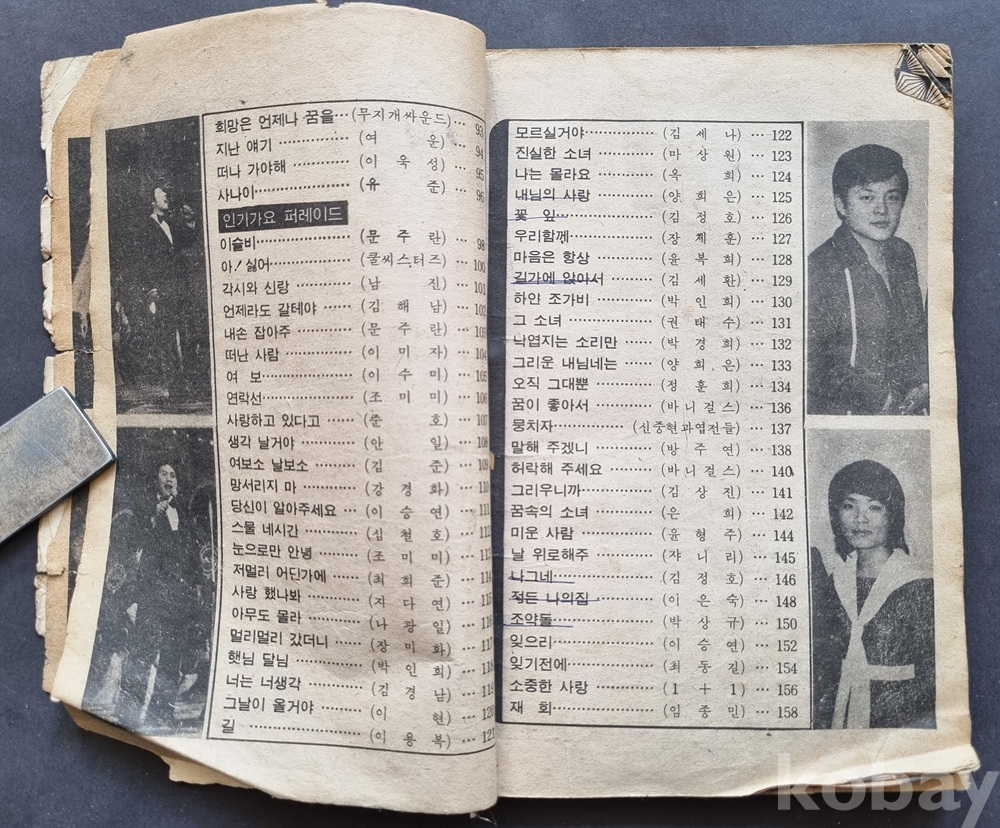 희망은 언제나 꿈을…(무지개싸운드)… 93
지난 얘기 …………(여 운)… 94
떠나 가야해 …………(이 욱 성)… 95
사나이…………(유 준)… 96
인기가요 퍼레이드
이슬비…………(문 주 란)… 98
아! 싫어…………(쿨씨스터즈)… 100
각시와 신랑 …………(남 진)… 101
언제라도 갈테야 …………(김 해 남)… 102
내손 잡아주 …………(문 주 란)… 103
떠난 사람 …………(이 미 자)… 104
여 보 …………(이 수 미)… 105
연락선…………(조 미 미)… 106
사랑하고 있다고 …………(준 호)… 107
생각 날거야 …………(안 일)… 108
여보소 날보소 …………(김 준)… 109
망서리지 마 …………(강 경 화)… 110
당신이 알아주세요 …(이 승 연)… 111
스물 네시간 …………(심 철 호)… 112
눈으로만 안녕 …………(조 미 미)… 113
저멀리 어딘가에 …………(최 희 준)… 114
사랑 했나봐 …………(지 다 연)… 115
아무도 몰라 …………(나 광 일)… 116
멀리멀리 갔더니 …………(장 미 화)… 117
햇님 달님 …………(박 인 희)… 118
너는 너생각 …………(김 경 남)… 119
그날이 올거야 …………(이 현)… 120
길 …………(이 용 복)… 121
모르실거야…………(김 세 나)… 122
진실한 소녀…………(마 상 원)… 123
나는 몰라요 …………(옥 희)… 124
내님의 사랑 …………(양 희 은)… 125
꽃 잎…………(김 정 호)… 126
우리함께…………(장 계 훈)… 127
마음은 항상 …………(윤 복 희)… 128
길가에 앉아서…………(김 세 환)… 129
하얀 조가비 …………(박 인 희)… 130
그 소녀 …………(권 태 수)… 131
낙엽지는 소리만 …………(박 경 희)… 132
그리운 내님네는 …………(양 희 은)… 133
오직 그대뿐 …………(정 훈 희)… 134
꿈이 좋아서 …………(바니걸스)… 136
뭉치자…………(신중현과엽전들)… 137
말해 주겠니 …………(방 주 연)… 138
허락해 주세요 …………(바니걸스)… 140
그리우니까…………(김 상 진)… 141
꿈속의 소녀 …………(은 희)… 142
미운 사람 …………(윤 형 주)… 144
날 위로해주 …………(쟈 니 리)… 145
나그네…………(김 정 호)… 146
정든 나의집 …………(이 은 숙)… 148
조약돌…………(박 상 규)… 150
잊으리…………(이 승 연)… 152
잊기전에…………(최 동 길)… 154
소중한 사랑 …………(1 + 1)… 156
재 회…………(임 종 민)… 158
kobay